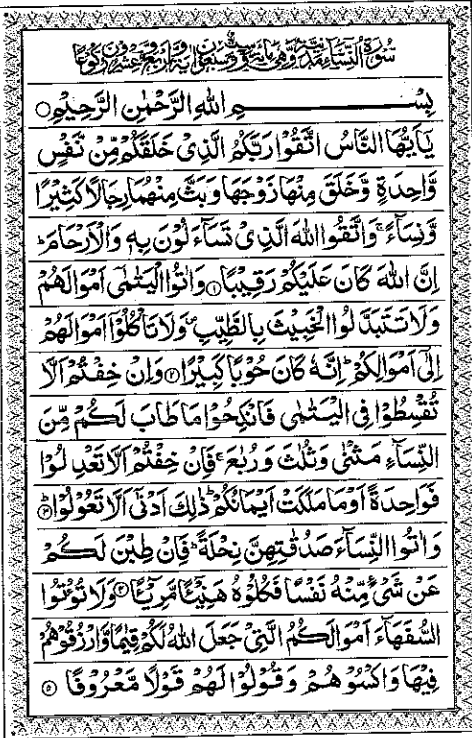 سُوْرَةُ النِّسَآءِ مَدَنِيَّةٌ وَّهِيَ مِائَةٌ وَّسِتٌّ وَّسَبْعُوْنَ اٰيَةً وَّاَرْبَعٌ وَّعِشْرُوْنَ رُكُوْعًا
بِسْمِ اللهِ الرَّحْمٰنِ الرَّحِيْمِ ○
يٰۤاَيُّهَا النَّاسُ اتَّقُوْا رَبَّكُمُ الَّذِیْ خَلَقَكُمْ مِّنْ نَّفْسٍ
وَّاحِدَةٍ وَّخَلَقَ مِنْهَا زَوْجَهَا وَبَثَّ مِنْهُمَا رِجَالًا كَثِيْرًا
وَّنِسَآءً ۚ وَاتَّقُوا اللهَ الَّذِیْ تَسَآءَلُوْنَ بِهٖ وَالْاَرْحَامَ ؕ
اِنَّ اللهَ كَانَ عَلَيْكُمْ رَقِيْبًا ۝۱ وَاٰتُوا الْيَتٰمٰۤی اَمْوَالَهُمْ
وَلَا تَتَبَدَّلُوا الْخَبِيْثَ بِالطَّيِّبِ ۪ وَلَا تَاْكُلُوْۤا اَمْوَالَهُمْ
اِلٰۤی اَمْوَالِكُمْ ؕ اِنَّهٗ كَانَ حُوْبًا كَبِيْرًا ۝۲ وَاِنْ خِفْتُمْ اَلَّا
تُقْسِطُوْا فِی الْيَتٰمٰی فَانْكِحُوْا مَا طَابَ لَكُمْ مِّنَ
النِّسَآءِ مَثْنٰی وَثُلٰثَ وَرُبٰعَ ۚ فَاِنْ خِفْتُمْ اَلَّا تَعْدِلُوْا
فَوَاحِدَةً اَوْ مَا مَلَكَتْ اَيْمَانُكُمْ ؕ ذٰلِكَ اَدْنٰۤی اَلَّا تَعُوْلُوْا ۝۳
وَاٰتُوا النِّسَآءَ صَدُقٰتِهِنَّ نِحْلَةً ؕ فَاِنْ طِبْنَ لَكُمْ
عَنْ شَیْءٍ مِّنْهُ نَفْسًا فَكُلُوْهُ هَنِيْٓئًا مَّرِيْٓئًا ۝۴ وَلَا تُؤْتُوا
السُّفَهَآءَ اَمْوَالَكُمُ الَّتِیْ جَعَلَ اللهُ لَكُمْ قِيٰمًا وَّارْزُقُوْهُمْ
فِيْهَا وَاكْسُوْهُمْ وَقُوْلُوْا لَهُمْ قَوْلًا مَّعْرُوْفًا ۝۵